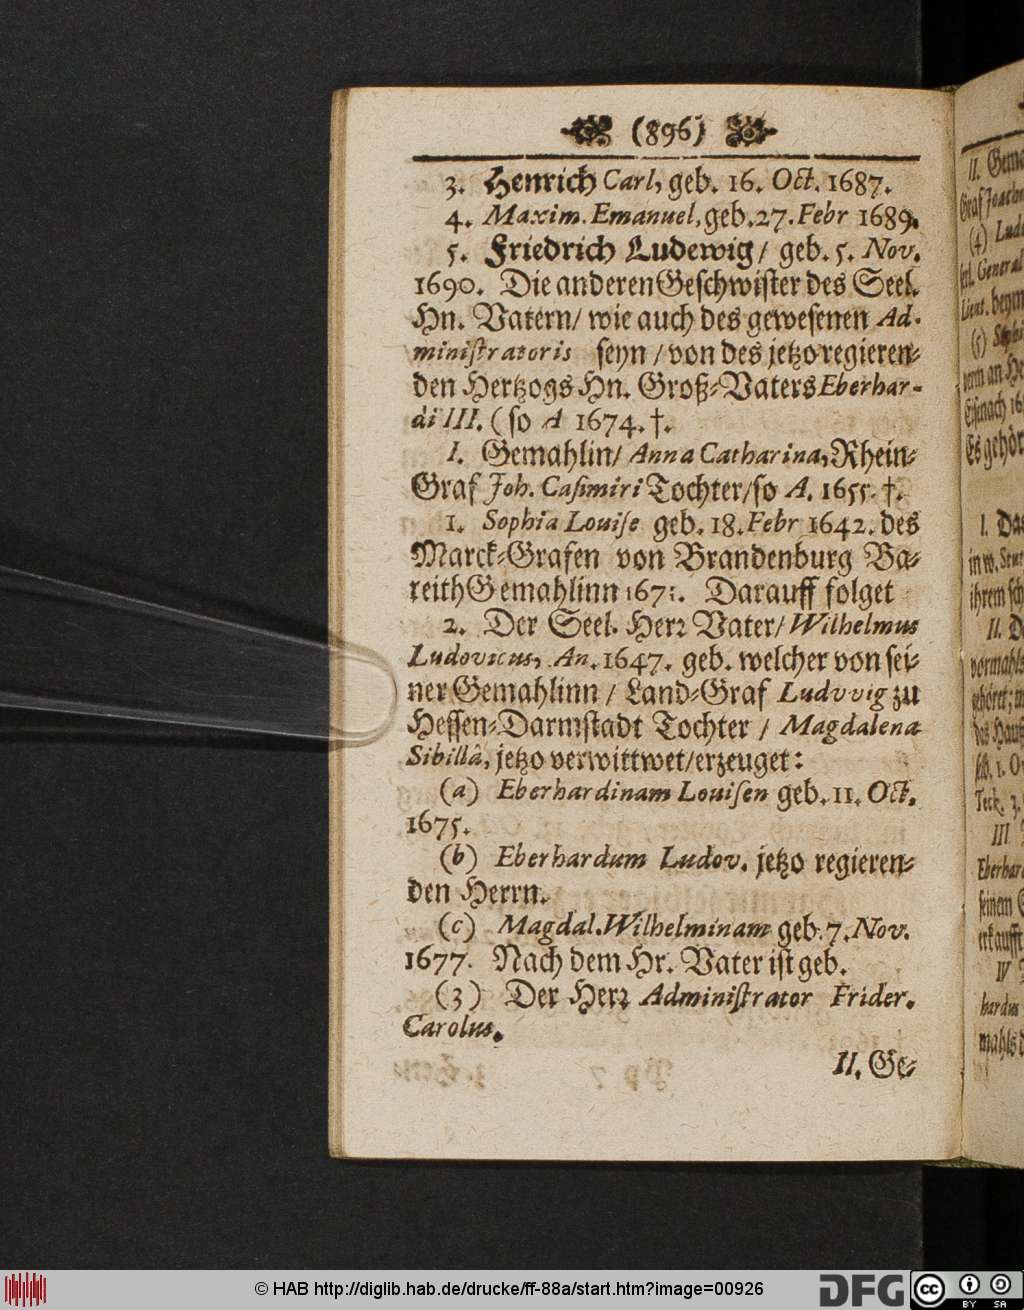 (896)
3. Henrich Carl, geb. 16. Oct. 1687.
4. Maxim. Emanuel, geb. 27. Febr 1689.
5. Friedrich Ludewig / geb. 5. Nov.
1690. Die anderen Geschwister des Seel.
Hn. Vatern / wie auch des gewesenen Ad-
ministratoris seyn / von des jetzo regieren-
den Hertzogs Hn. Groß-Vaters Eberhar-
di III. (so A 1674. †.
I. Gemahlin / Anna Catharina, Rhein-
Graf Joh. Casimiri Tochter / so A. 1655. †.
1. Sophia Louise geb. 18. Febr 1642. des
Marck-Grafen von Brandenburg Ba-
reith Gemahlinn Darauff folget
2. Der Seel. Herr Vater / Wilhelmus
Ludovicus, An. 1647. geb. welcher von sei-
ner Gemahlinn / Land-Graf Ludvvig zu
Hessen-Darmstadt Tochter / Magdalena
Sibillâ, jetzo verwittwet / erzeuget:
(a) Eberhardinam Louisen geb. 11. Oct.
1675.
(b) Eberhardum Ludov. jetzo regieren-
den Herrn.
(c) Magdal. Wilhelminam geb. 7. Nov.
1677. Nach dem Hr. Vater ist geb.
(3) Der Herr Administrator Frider.
Carolus.
II. Ge-
II. Gema
Graf Joach
(4) Lud
General
Lieut. beym
(5)
Eisenach 16
Es gehör
I. Da
ihrem sch
II. D
vormahls
III
Eberhar
seinem
erkaufft
IV
hardus
mahls d
© HAB http://diglib.hab.de/drucke/ff-88a/start.htm?image=00926
DFG
cc BY SA